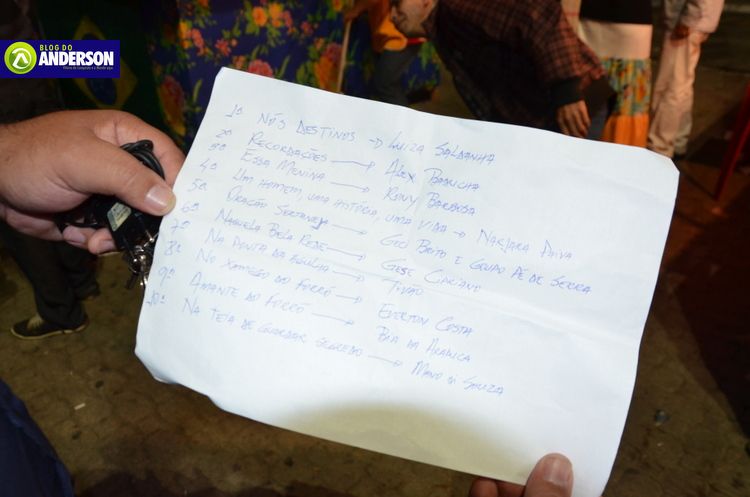 BLOG DO
ANDERSON
1º NÓS DESTINOS → LUIZA SALDANHA
2º RECORDAÇÕES → ALEX
3º ESSA MENINA → RONY BARBOSA
4º UM HOMEM, UMA HISTÓRIA, UMA VIDA → NARJARA PAIVA
5º ORAÇÃO SERTANEJA → GEO BRITO E GRUPO PÉ DE SERRA
6º NAQUELA BELA REDE → GESE CIPRIANO
7º NA PONTA DA AGULHA → TIVÃO
8º NO XAMEGO DO FORRÓ → EVERTON COSTA
9º AMANTE DO FORRÓ → BIA DA
10º NA TEIA DE GUARDAR SEGREDO → MANO DI SOUZA